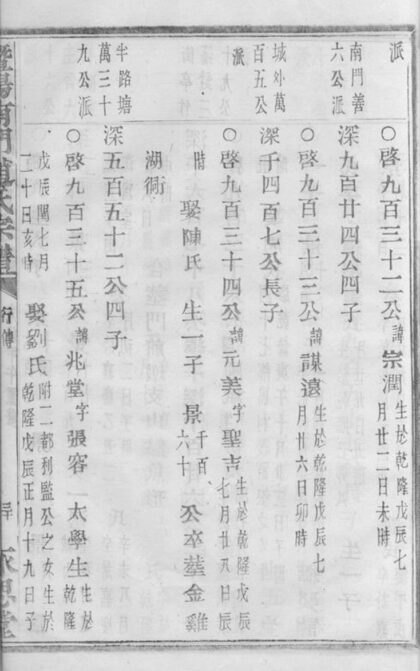 派
○啓九百三十二公諱宗潤生於乾隆戊辰七
月廿二日未時
南門善
六公派
深九百廿四公四子
○啓九百三十三公諱謀遠生於乾隆戊辰七
月廿六日卯時
城外萬
百五公
深千四百七公長子
派
○啓九百三十四公諱元美字聖吉生於乾隆戊辰
七月廿八日辰
時 娶陳氏 生一子 景千百
六十公卒塟金雞
湖衕
半路塘
萬三十
九公派
深五百五十二公四子
○啓九百三十五公諱兆堂字張容一太學生生於
乾隆
戊辰閏七月
二十日亥時
娶劉氏附二都利監公之女生於
乾隆戊辰正月十九日子
南門趙氏宗譜 行傳 永思堂